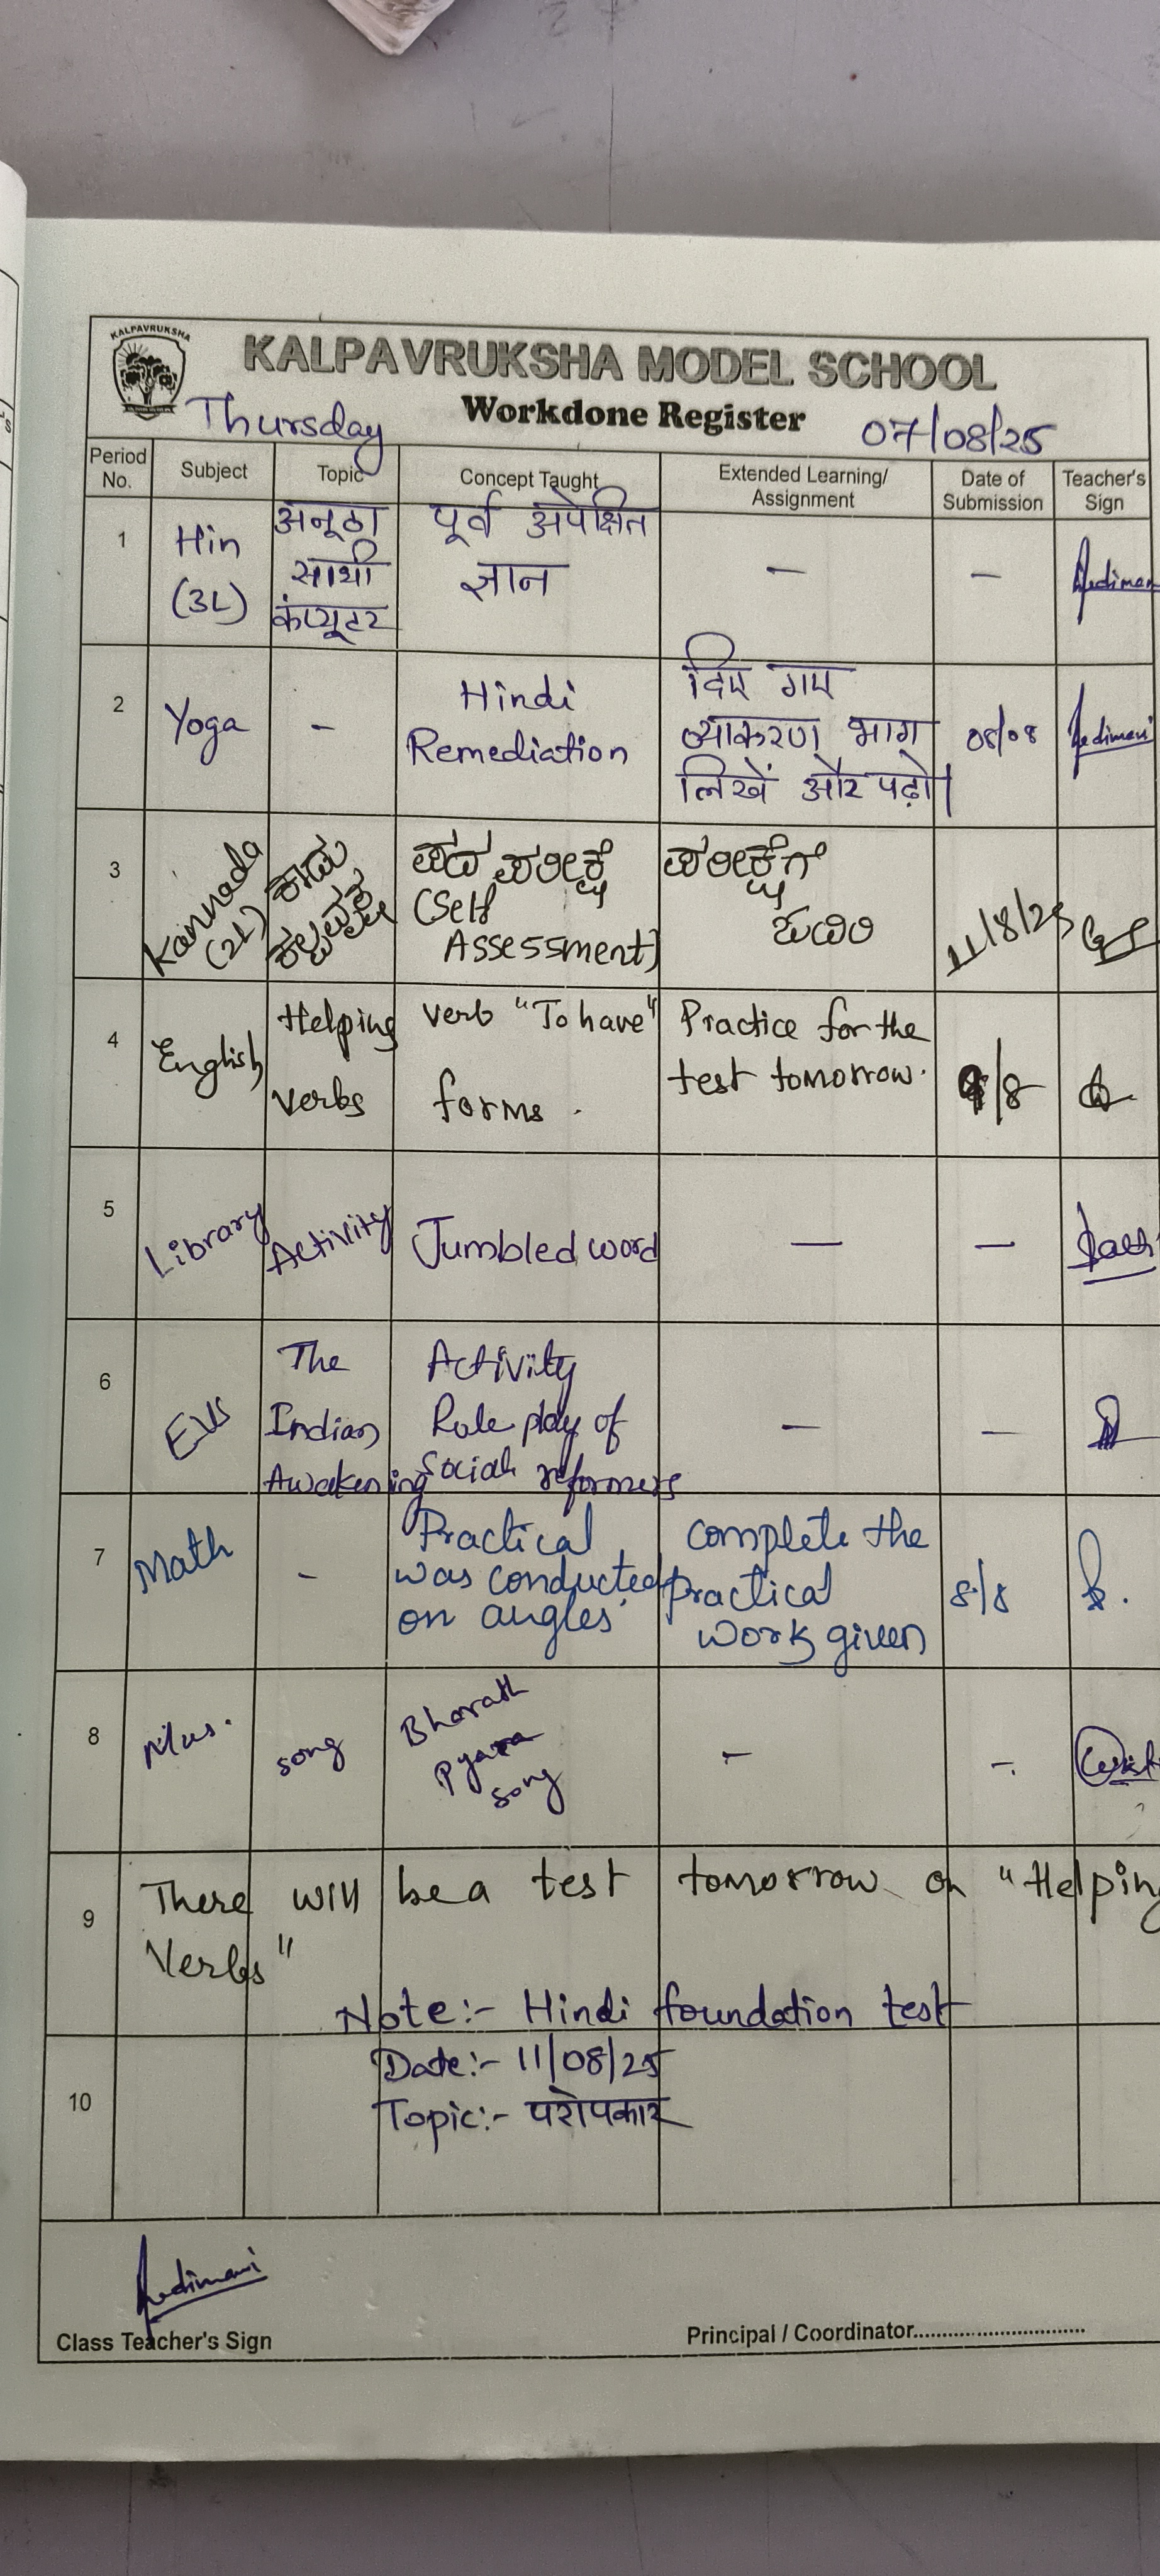 KALPAVRUKSHA
KALPAVRUKSHA MODEL SCHOOL
Workdone Register
Thursday
07/08/25
Period No. Subject Topic Concept Taught Extended Learning/ Assignment Date of Submission Teacher's Sign
1 Hin (3L) अनूठा साथी कंप्यूटर पूर्व अपेक्षित ज्ञान - -
2 Yoga - Hindi Remediation दिए गए व्याकरण भाग लिखें और पढ़ो। 08/08
3 Kannada (2L) ಕಾಡು (Self Assessment) ಪರೀಕ್ಷೆಗೆ ಓದಿರಿ 11/8/25
4 English Helping Verbs Verb "To have" forms. Practice for the test tomorrow. /8
5 Library Activity Jumbled word - -
6 EVS The Indian Awakening Activity Role play of Social reformers - -
7 Math - Practical was conducted on angles. Complete the practical work given 8/8
8 Mus. song Bharath Pyara song - -
9 There will be a test tomorrow on "Helping
Verbs"
Note:- Hindi foundation test
10 Date:- 11/08/25
Topic:- परोपकार
Class Teacher's Sign
Principal / Coordinator..............................